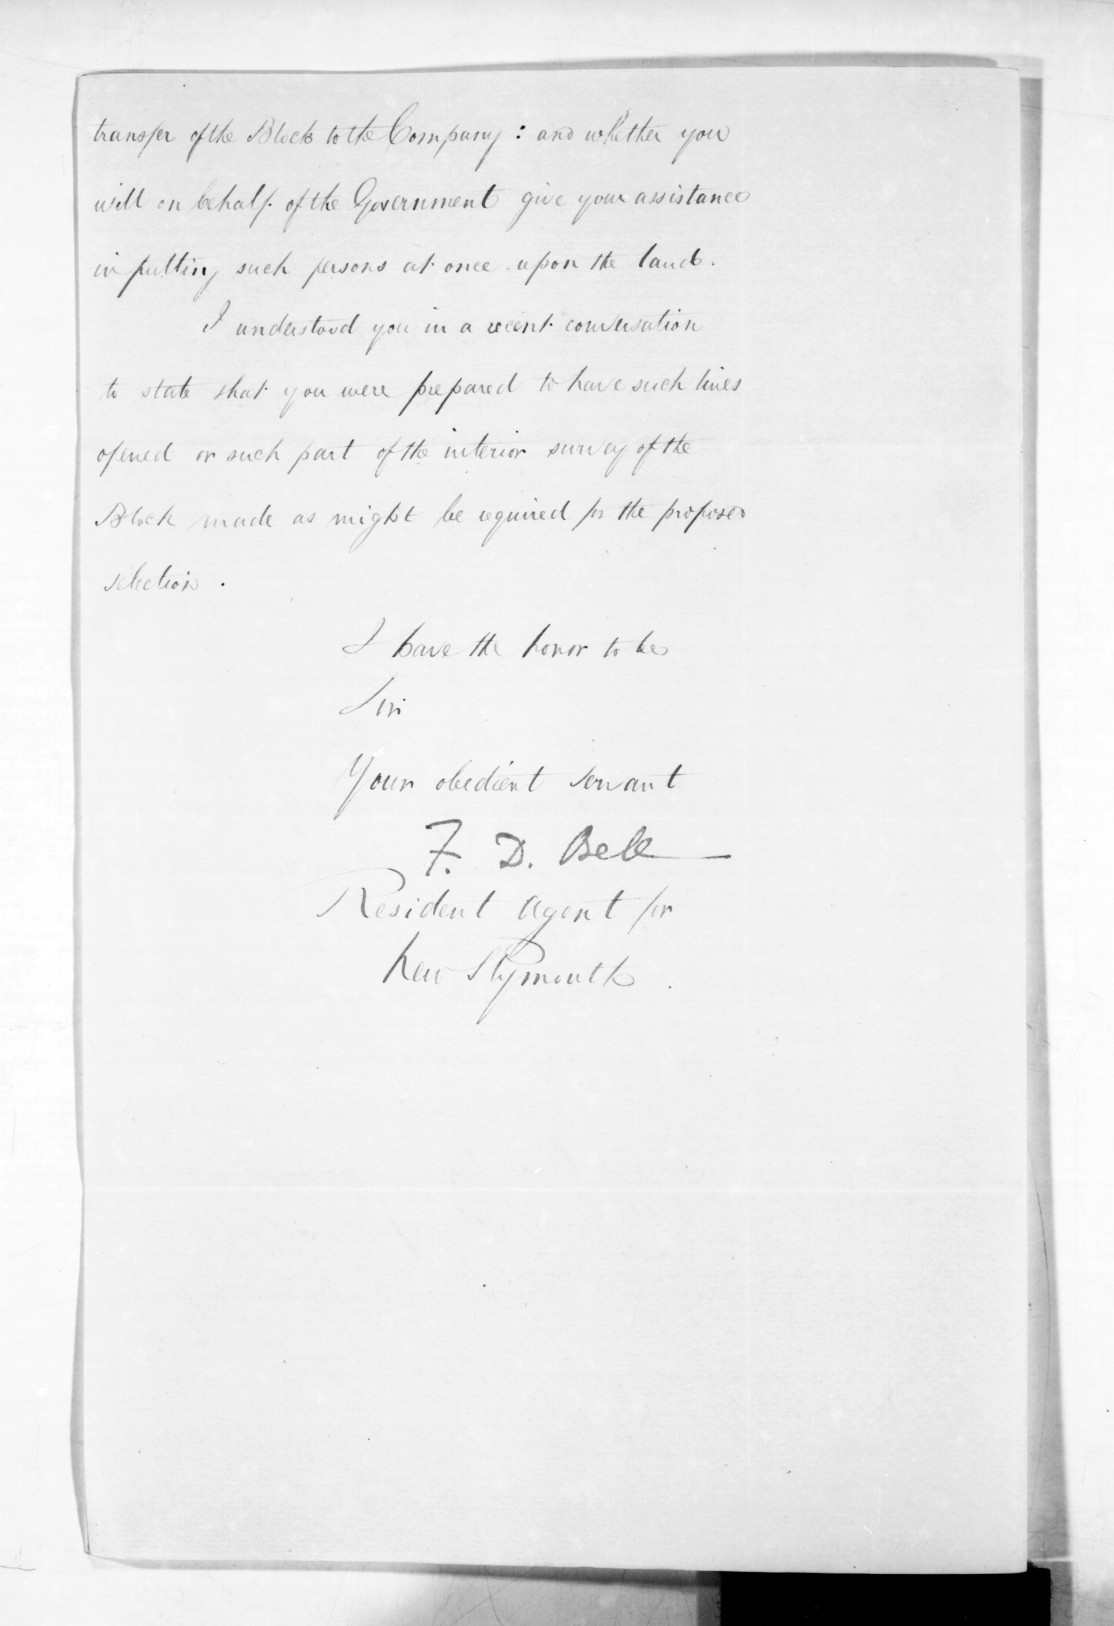 transfer of the Block to the Company: and whether you
will on behalf of the Government give your assistance
in putting such persons at once upon the land.
I understood you in a recent conversation
to state that you were prepared to have such lines
opened or such part of the interior survey of the
Block made as might be required for the proposed
selection.
I have the honor to be
Sir
Your obedient servant
F. D. Bell
Resident Agent for
New Plymouth.